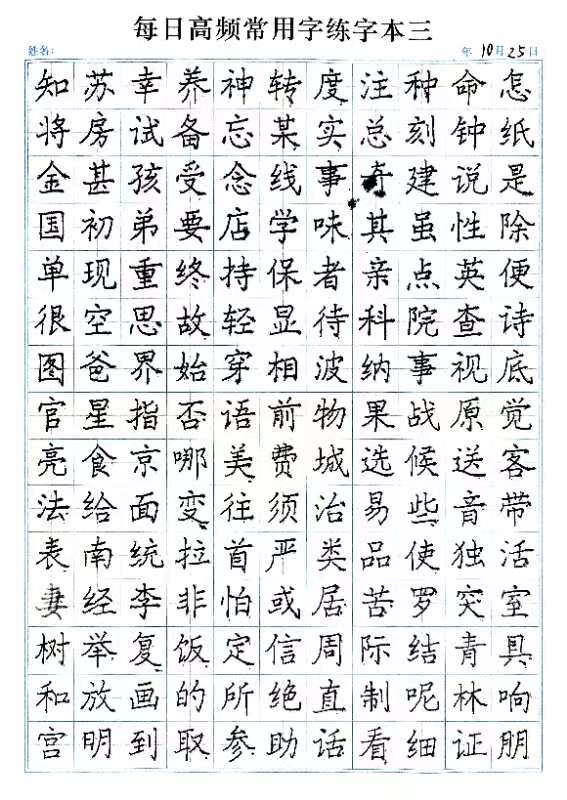 每日高频常用字练字本三
姓名: 年 10月 25日
知苏幸养神转度注种命怎
将房试备忘某实总刻钟纸
金甚孩受念线事奇建说是
国初弟要店学味其虽性除
单现重终持保者亲点英便
很空思故轻显待科院查诗
图爸界始穿相波纳事视底
官星指否语前物果战原觉
亮食京哪美费城选候送客
法给面变往须治易些音带
表南统拉首严类品使独活
妻经李非怕或居苦罗突室
树举复饭定信周际结青具
和放画的所绝直制呢林响
宫明到取参助话看细证朋